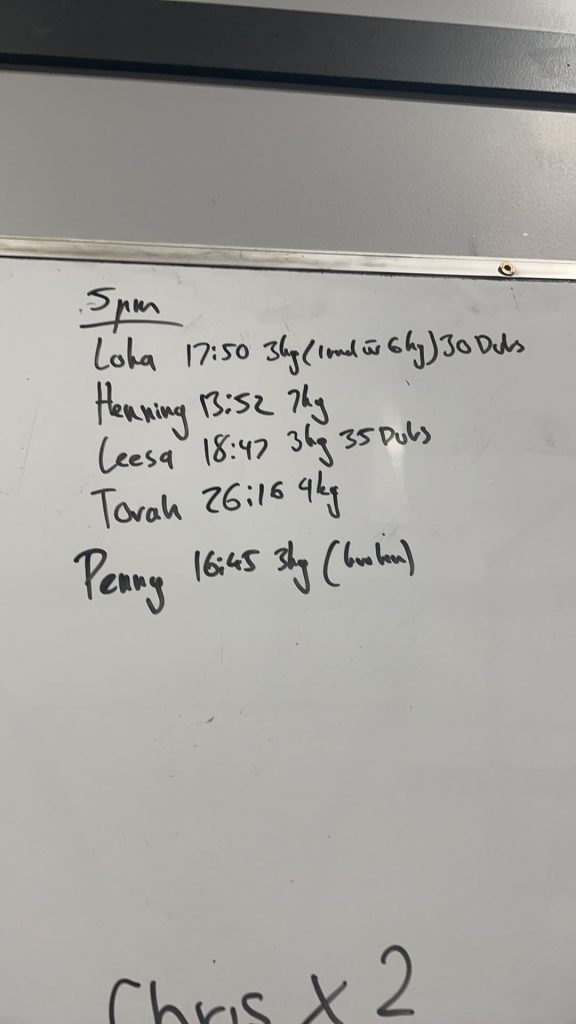 5pm
Loka 17:50 3kg (1 rnd 6kg) 30 Dubs
Henning 13:52 7kg
Leesa 18:47 3kg 35 Dubs
Torah 26:16 4kg
Penny 16:45 3kg (broken)
Chris x 2